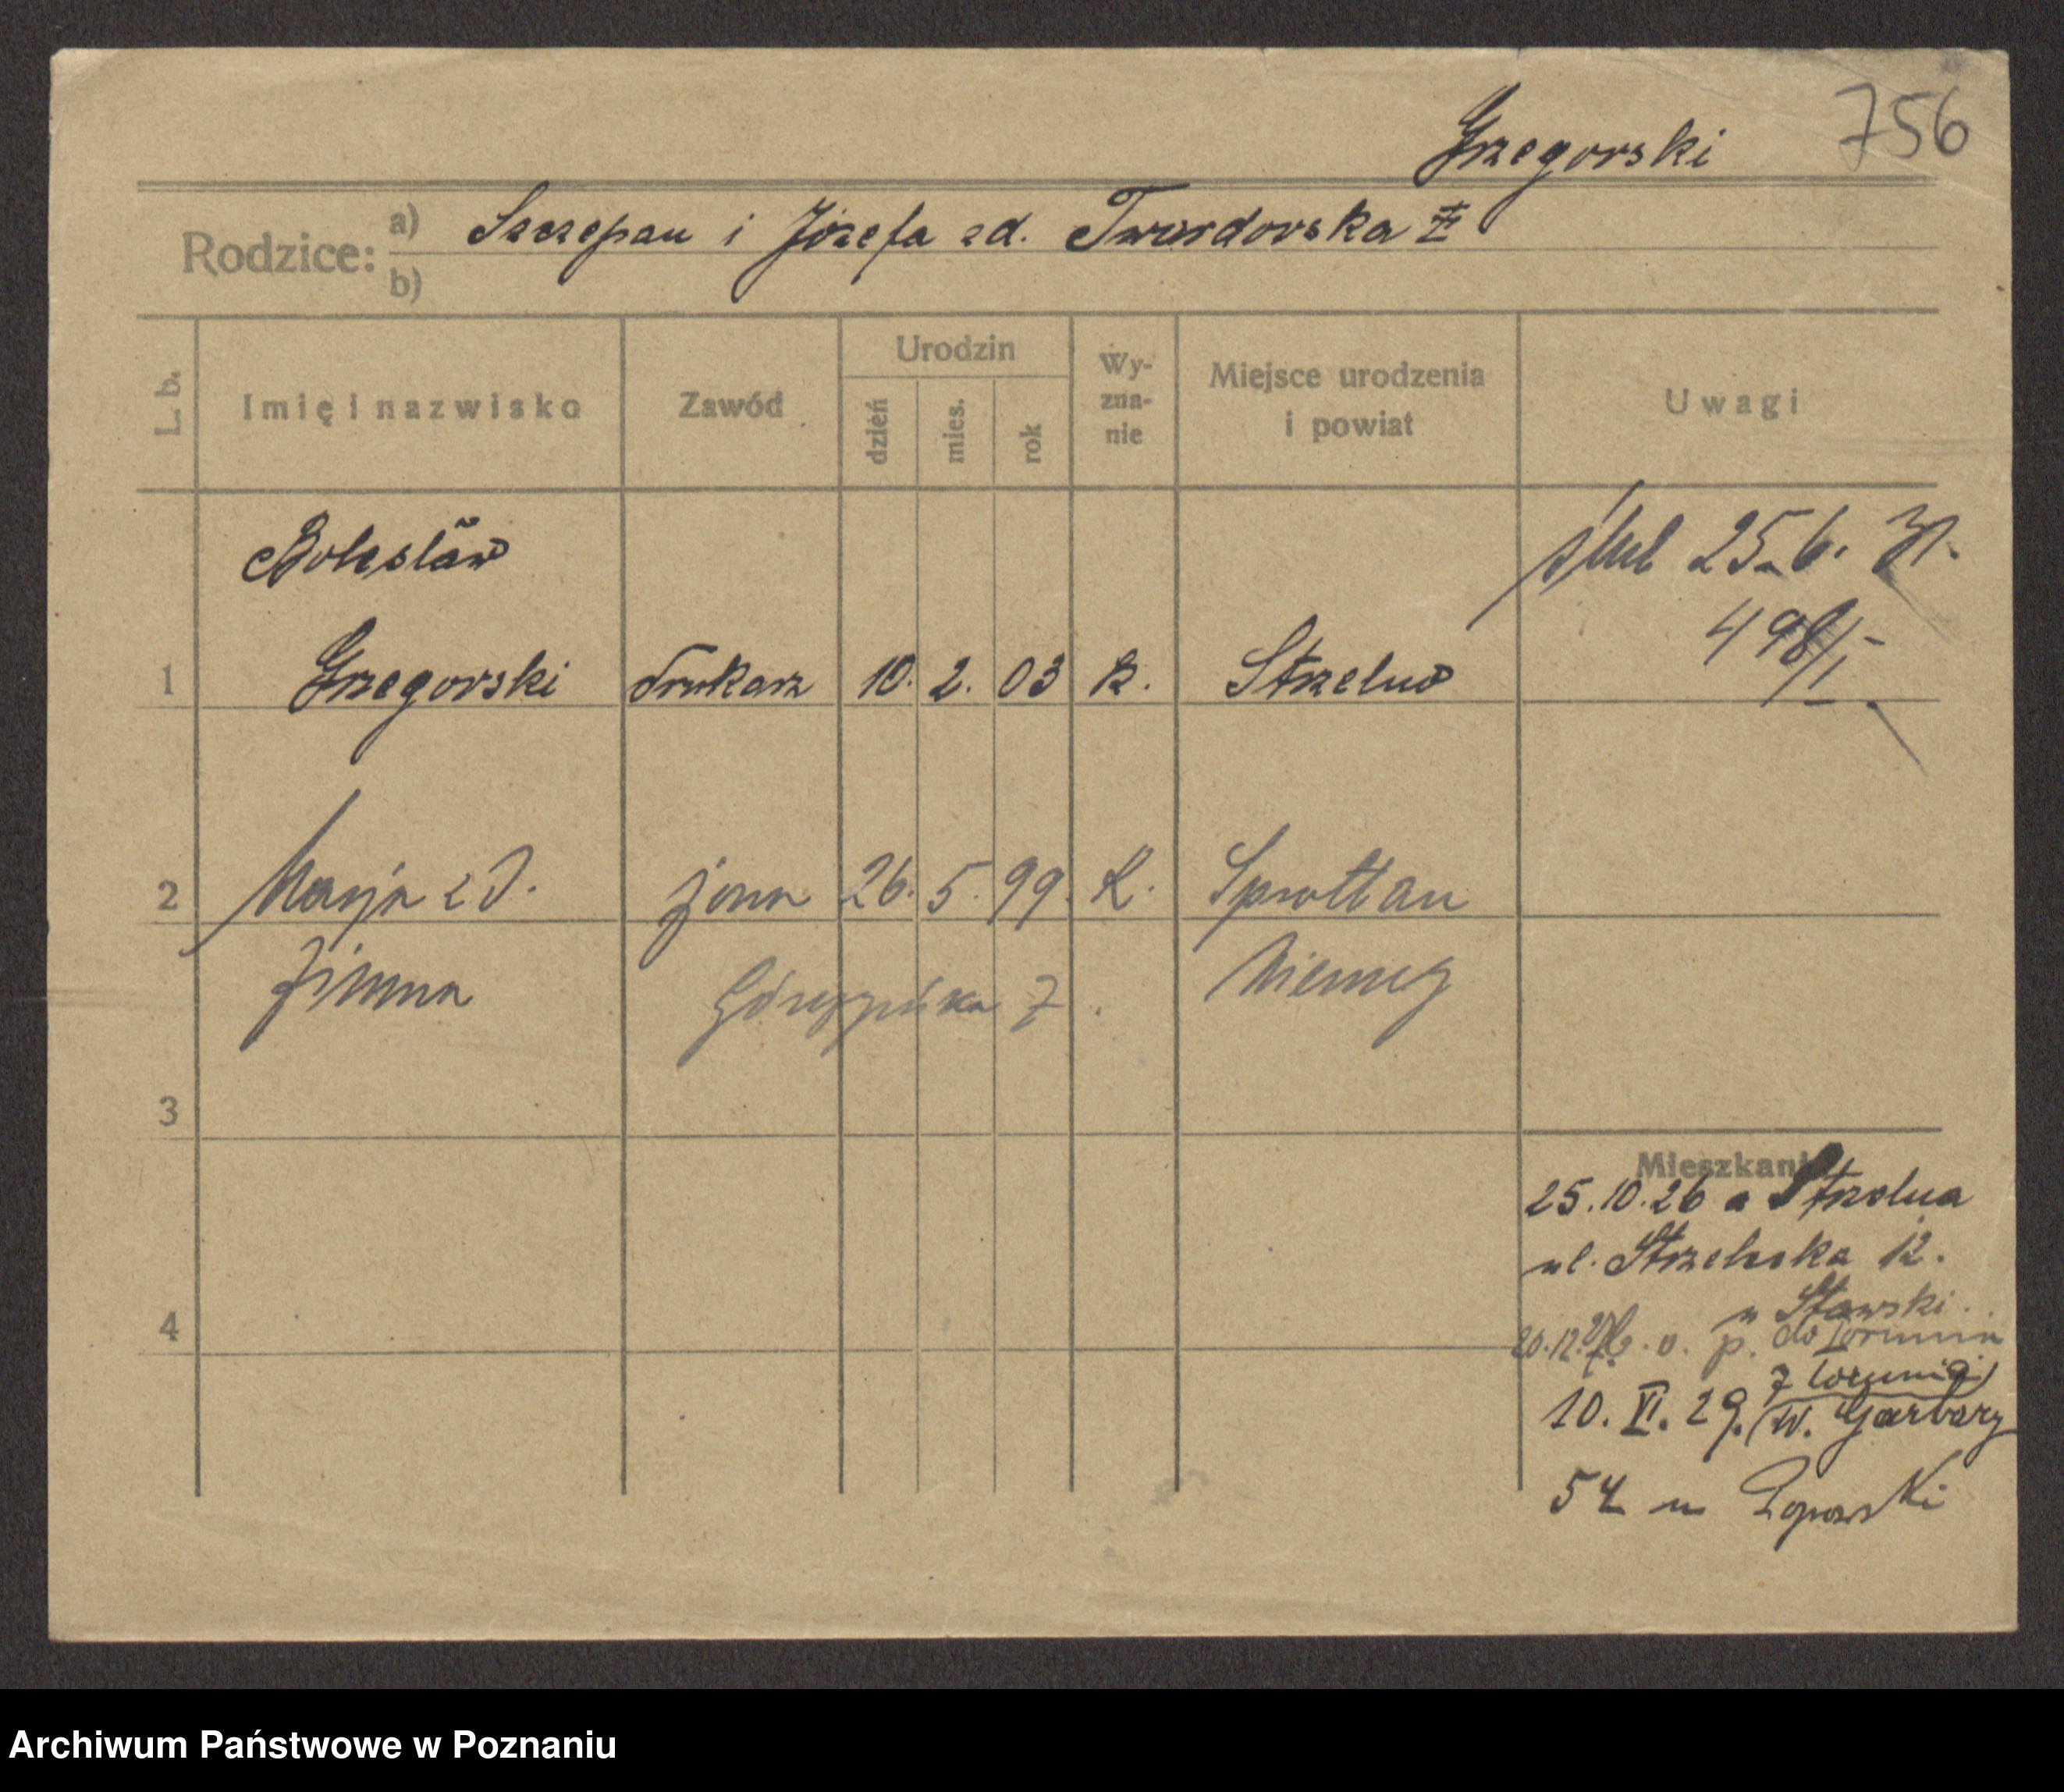 Grzegorski 756
Rodzice: a) Szczepan i Józefa zd. Twardovska
b)
L. b. Imię i nazwisko Zawód Urodzin dzień mies. rok Wy-zna-nie Miejsce urodzenia i powiat Uwagi
Bolesław ślub 25.6.31.
498/I
1 Grzegorski drukarz 10. 2. 03 k. Strzelno
2 Marja zd. żona 26. 5. 99. k. Sprottau
Zimna 7. Niemcy
3
Mieszkanie
25.10.26 a Strzelna
ul. Strzelecka 12.
u Stawski.
4
20.12. o. p. do Torunia
z Torunia
10. VI. 29. W. Garbary
54 u
Archiwum Państwowe w Poznaniu